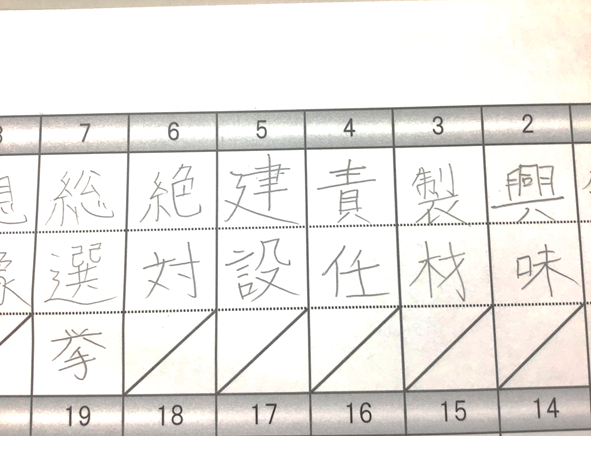 7 6 5 4 3 2
興味
製材
責任
建設
絶対
総選挙
19 18 17 16 15 14